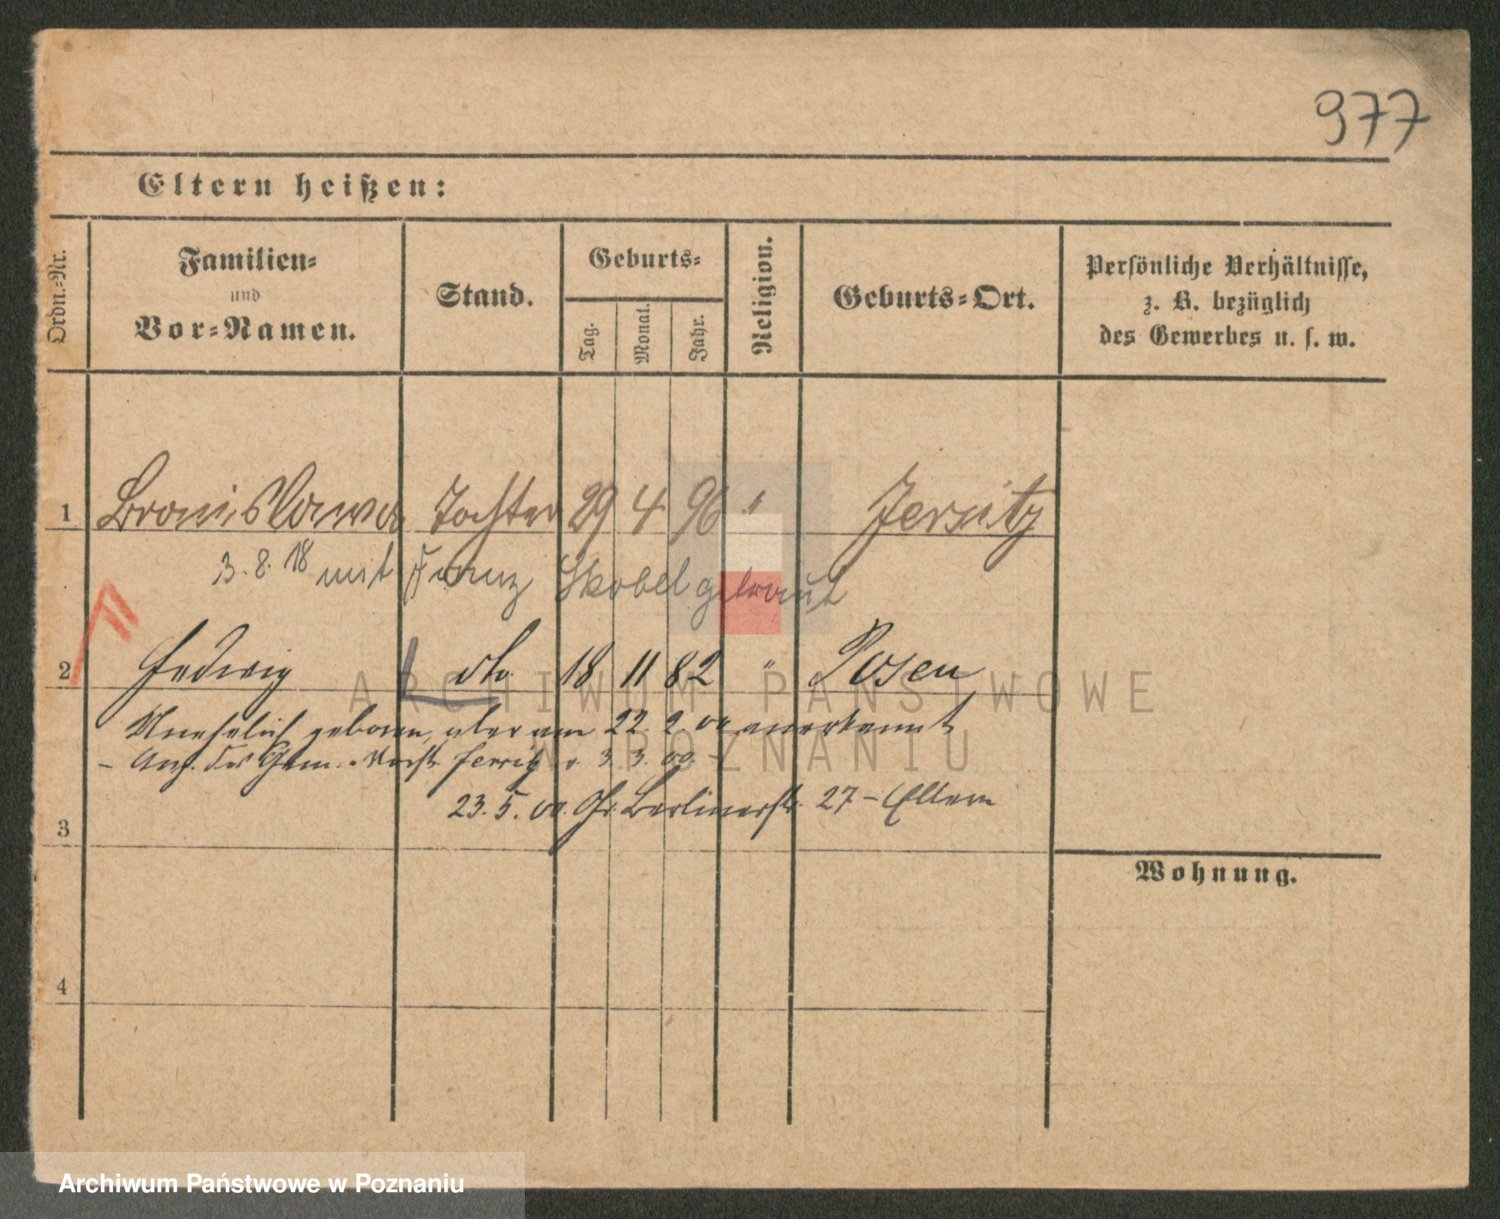 977
Eltern heißen:
Ordn.-Nr.
Familien-
und
Vor-Namen.
Stand.
Geburts-
Tag.
Monat.
Jahr.
Religion.
Geburts-Ort.
Persönliche Verhältnisse,
z. B. bezüglich
des Gewerbes u. s. w.
1 Bronislawa Tochter 29 4 96 Jersitz
3. 8. 18 mit Franz Skobel getraut
2 Hedwig dto 18 11 82 " Posen
Unehelich geboren, aber am 22. 2. 00 anerkannt
- Anz. des Gem. Vorst. Jersitz v. 3. 3. 00 -
23. 5. 00. Gr. Berlinerstr. 27 - Eltern
3
Wohnung.
4
ARCHIWUM PAŃSTWOWE
W POZNANIU
Archiwum Państwowe w Poznaniu